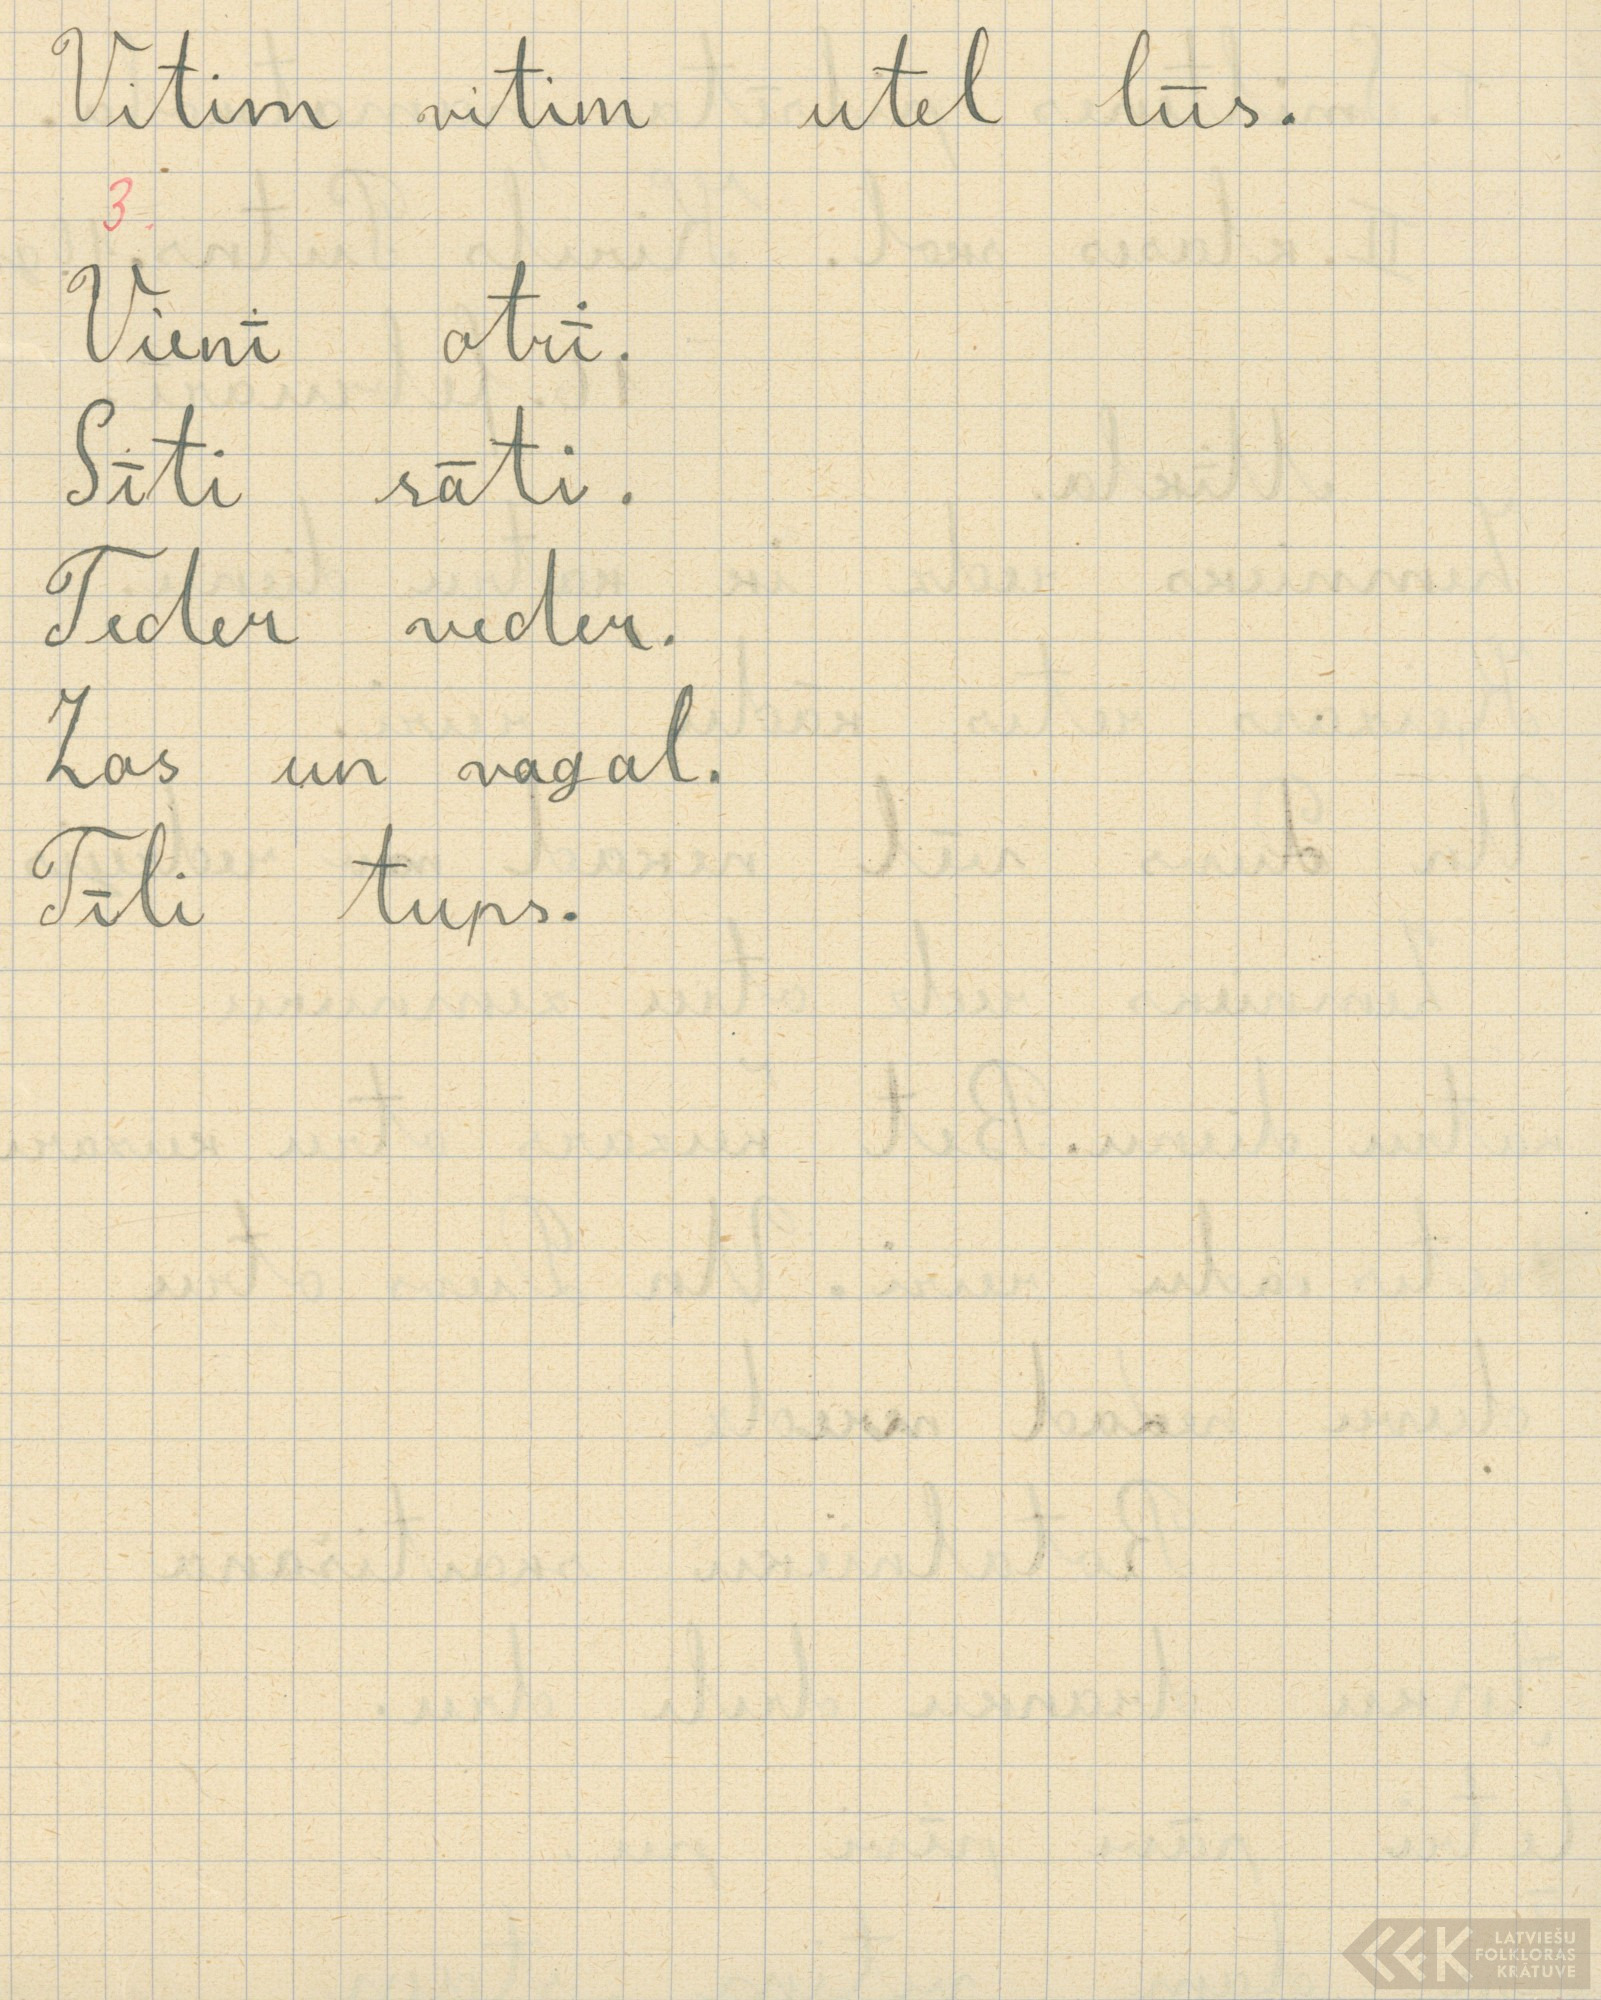 Vitim vitim utel lūs.
3.
Vienī otrī.
Sīti sāti.
Teder veder.
Zos un vagal.
Tīli tups.
LATVIEŠU
FOLKLORAS
KRĀTUVE